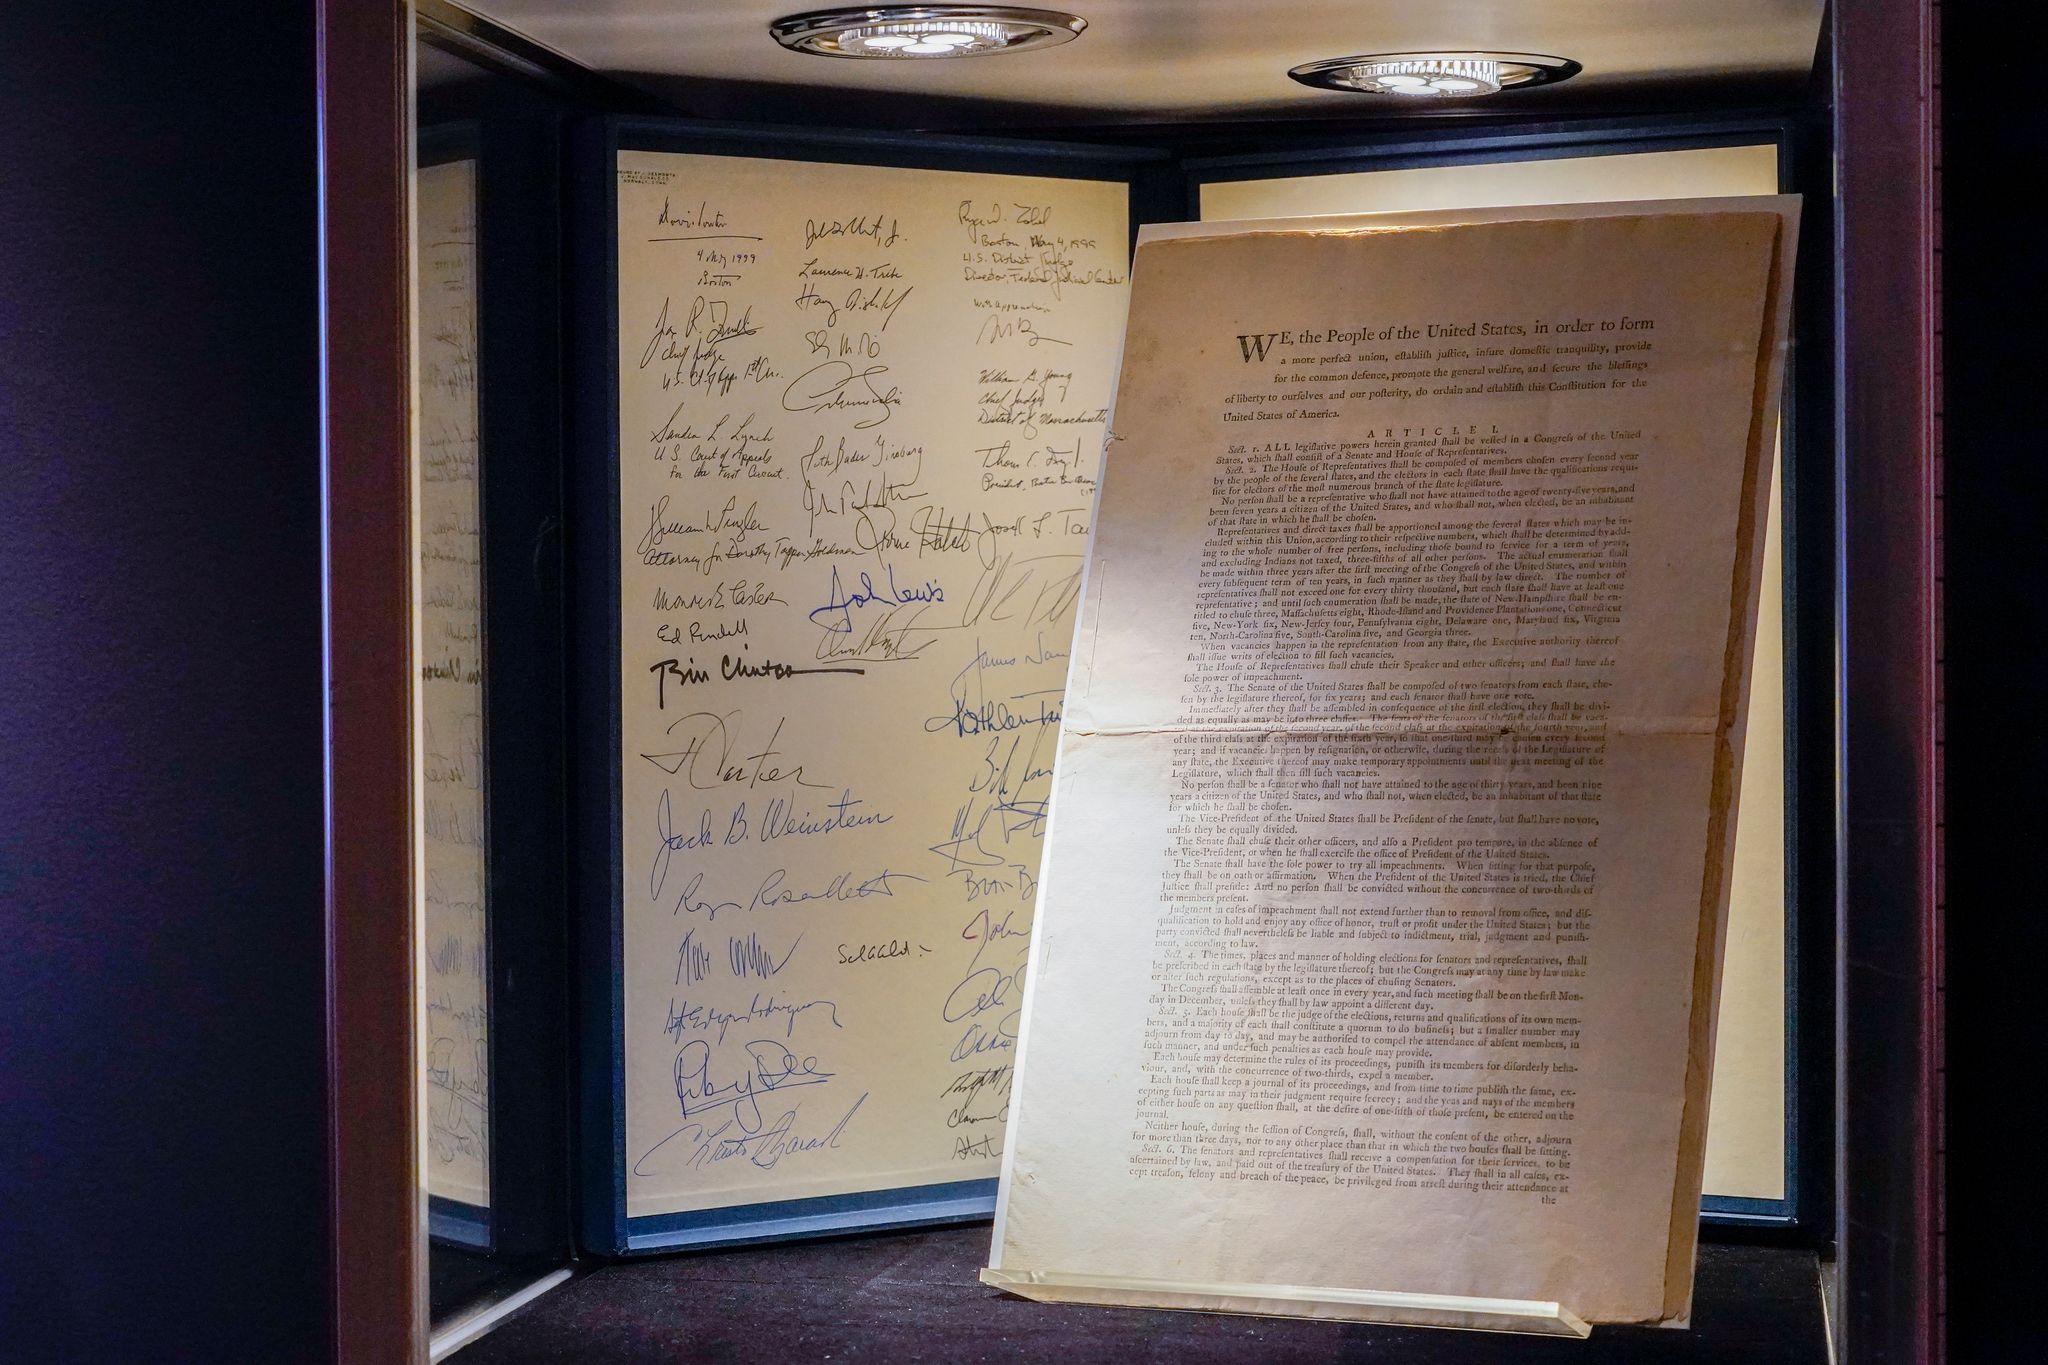 4 May 1999
Boston
Chief Judge
Sandra L. Lynch
U.S. Court of Appeals
for the First Circuit.
Attorney for Dorothy Tapper Goldman
Ed Rendell
Bill Clinton
J Carter
Jack B. Weinstein
Laurence H. Tribe
Ruth Bader Ginsburg
John Lewis
Boston, May 4, 1999
U.S. District Judge
Director, Federal Judicial Center
William G. Young
Chief Judge
District of Massachusetts
WE, the People of the United States, in order to form
a more perfect union, establish justice, insure domestic tranquility, provide
for the common defence, promote the general welfare, and secure the blessings
of liberty to ourselves and our posterity, do ordain and establish this Constitution for the
United States of America.
ARTICLE I.
Sect. 1. ALL legislative powers herein granted shall be vested in a Congress of the United
States, which shall consist of a Senate and House of Representatives.
Sect. 2. The House of Representatives shall be composed of members chosen every second year
by the people of the several states, and the electors in each state shall have the qualifications requi-
site for electors of the most numerous branch of the state legislature.
No person shall be a representative who shall not have attained to the age of twenty-five years, and
been seven years a citizen of the United States, and who shall not, when elected, be an inhabitant
of that state in which he shall be chosen.
Representatives and direct taxes shall be apportioned among the several states which may be in-
cluded within this Union, according to their respective numbers, which shall be determined by add-
ing to the whole number of free persons, including those bound to service for a term of years,
and excluding Indians not taxed, three-fifths of all other persons. The actual enumeration shall
be made within three years after the first meeting of the Congress of the United States, and within
every subsequent term of ten years, in such manner as they shall by law direct. The number of
representatives shall not exceed one for every thirty thousand, but each state shall have at least one
representative; and until such enumeration shall be made, the state of New-Hampshire shall be en-
titled to chuse three, Massachusetts eight, Rhode-Island and Providence Plantations one, Connecticut
five, New-York six, New-Jersey four, Pennsylvania eight, Delaware one, Maryland six, Virginia
ten, North-Carolina five, South-Carolina five, and Georgia three.
When vacancies happen in the representation from any state, the Executive authority thereof
shall issue writs of election to fill such vacancies.
The House of Representatives shall chuse their Speaker and other officers; and shall have the
sole power of impeachment.
Sect. 3. The Senate of the United States shall be composed of two senators from each state, cho-
sen by the legislature thereof, for six years; and each senator shall have one vote.
Immediately after they shall be assembled in consequence of the first election, they shall be divi-
ded as equally as may be into three classes. The seats of the senators of the first class shall be vaca-
at the expiration of the second year, of the second class at the expiration of the fourth year, and
of the third class at the expiration of the sixth year, so that one-third may be chosen every second
year; and if vacancies happen by resignation, or otherwise, during the recess of the Legislature of
any state, the Executive thereof may make temporary appointments until the next meeting of the
Legislature, which shall then fill such vacancies.
No person shall be a senator who shall not have attained to the age of thirty years, and been nine
years a citizen of the United States, and who shall not, when elected, be an inhabitant of that state
for which he shall be chosen.
The Vice-President of the United States shall be President of the senate, but shall have no vote,
unless they be equally divided.
The Senate shall chuse their other officers, and also a President pro tempore, in the absence of
the Vice-President, or when he shall exercise the office of President of the United States.
The Senate shall have the sole power to try all impeachments. When sitting for that purpose,
they shall be on oath or affirmation. When the President of the United States is tried, the Chief
Justice shall preside: And no person shall be convicted without the concurrence of two-thirds of
the members present.
Judgment in cases of impeachment shall not extend further than to removal from office, and dis-
qualification to hold and enjoy any office of honor, trust or profit under the United States; but the
party convicted shall nevertheless be liable and subject to indictment, trial, judgment and punish-
ment, according to law.
Sect. 4. The times, places and manner of holding elections for senators and representatives, shall
be prescribed in each state by the legislature thereof; but the Congress may at any time by law make
or alter such regulations, except as to the places of chusing Senators.
The Congress shall assemble at least once in every year, and such meeting shall be on the first Mon-
day in December, unless they shall by law appoint a different day.
Sect. 5. Each house shall be the judge of the elections, returns and qualifications of its own mem-
bers, and a majority of each shall constitute a quorum to do business; but a smaller number may
adjourn from day to day, and may be authorised to compel the attendance of absent members, in
such manner, and under such penalties as each house may provide.
Each house may determine the rules of its proceedings, punish its members for disorderly beha-
viour, and, with the concurrence of two-thirds, expel a member.
Each house shall keep a journal of its proceedings, and from time to time publish the same, ex-
cepting such parts as may in their judgment require secrecy; and the yeas and nays of the members
of either house on any question shall, at the desire of one-fifth of those present, be entered on the
journal.
Neither house, during the session of Congress, shall, without the consent of the other, adjourn
for more than three days, nor to any other place than that in which the two houses shall be sitting.
Sect. 6. The senators and representatives shall receive a compensation for their services, to be
ascertained by law, and paid out of the treasury of the United States. They shall in all cases, ex-
cept treason, felony and breach of the peace, be privileged from arrest during their attendance at
the